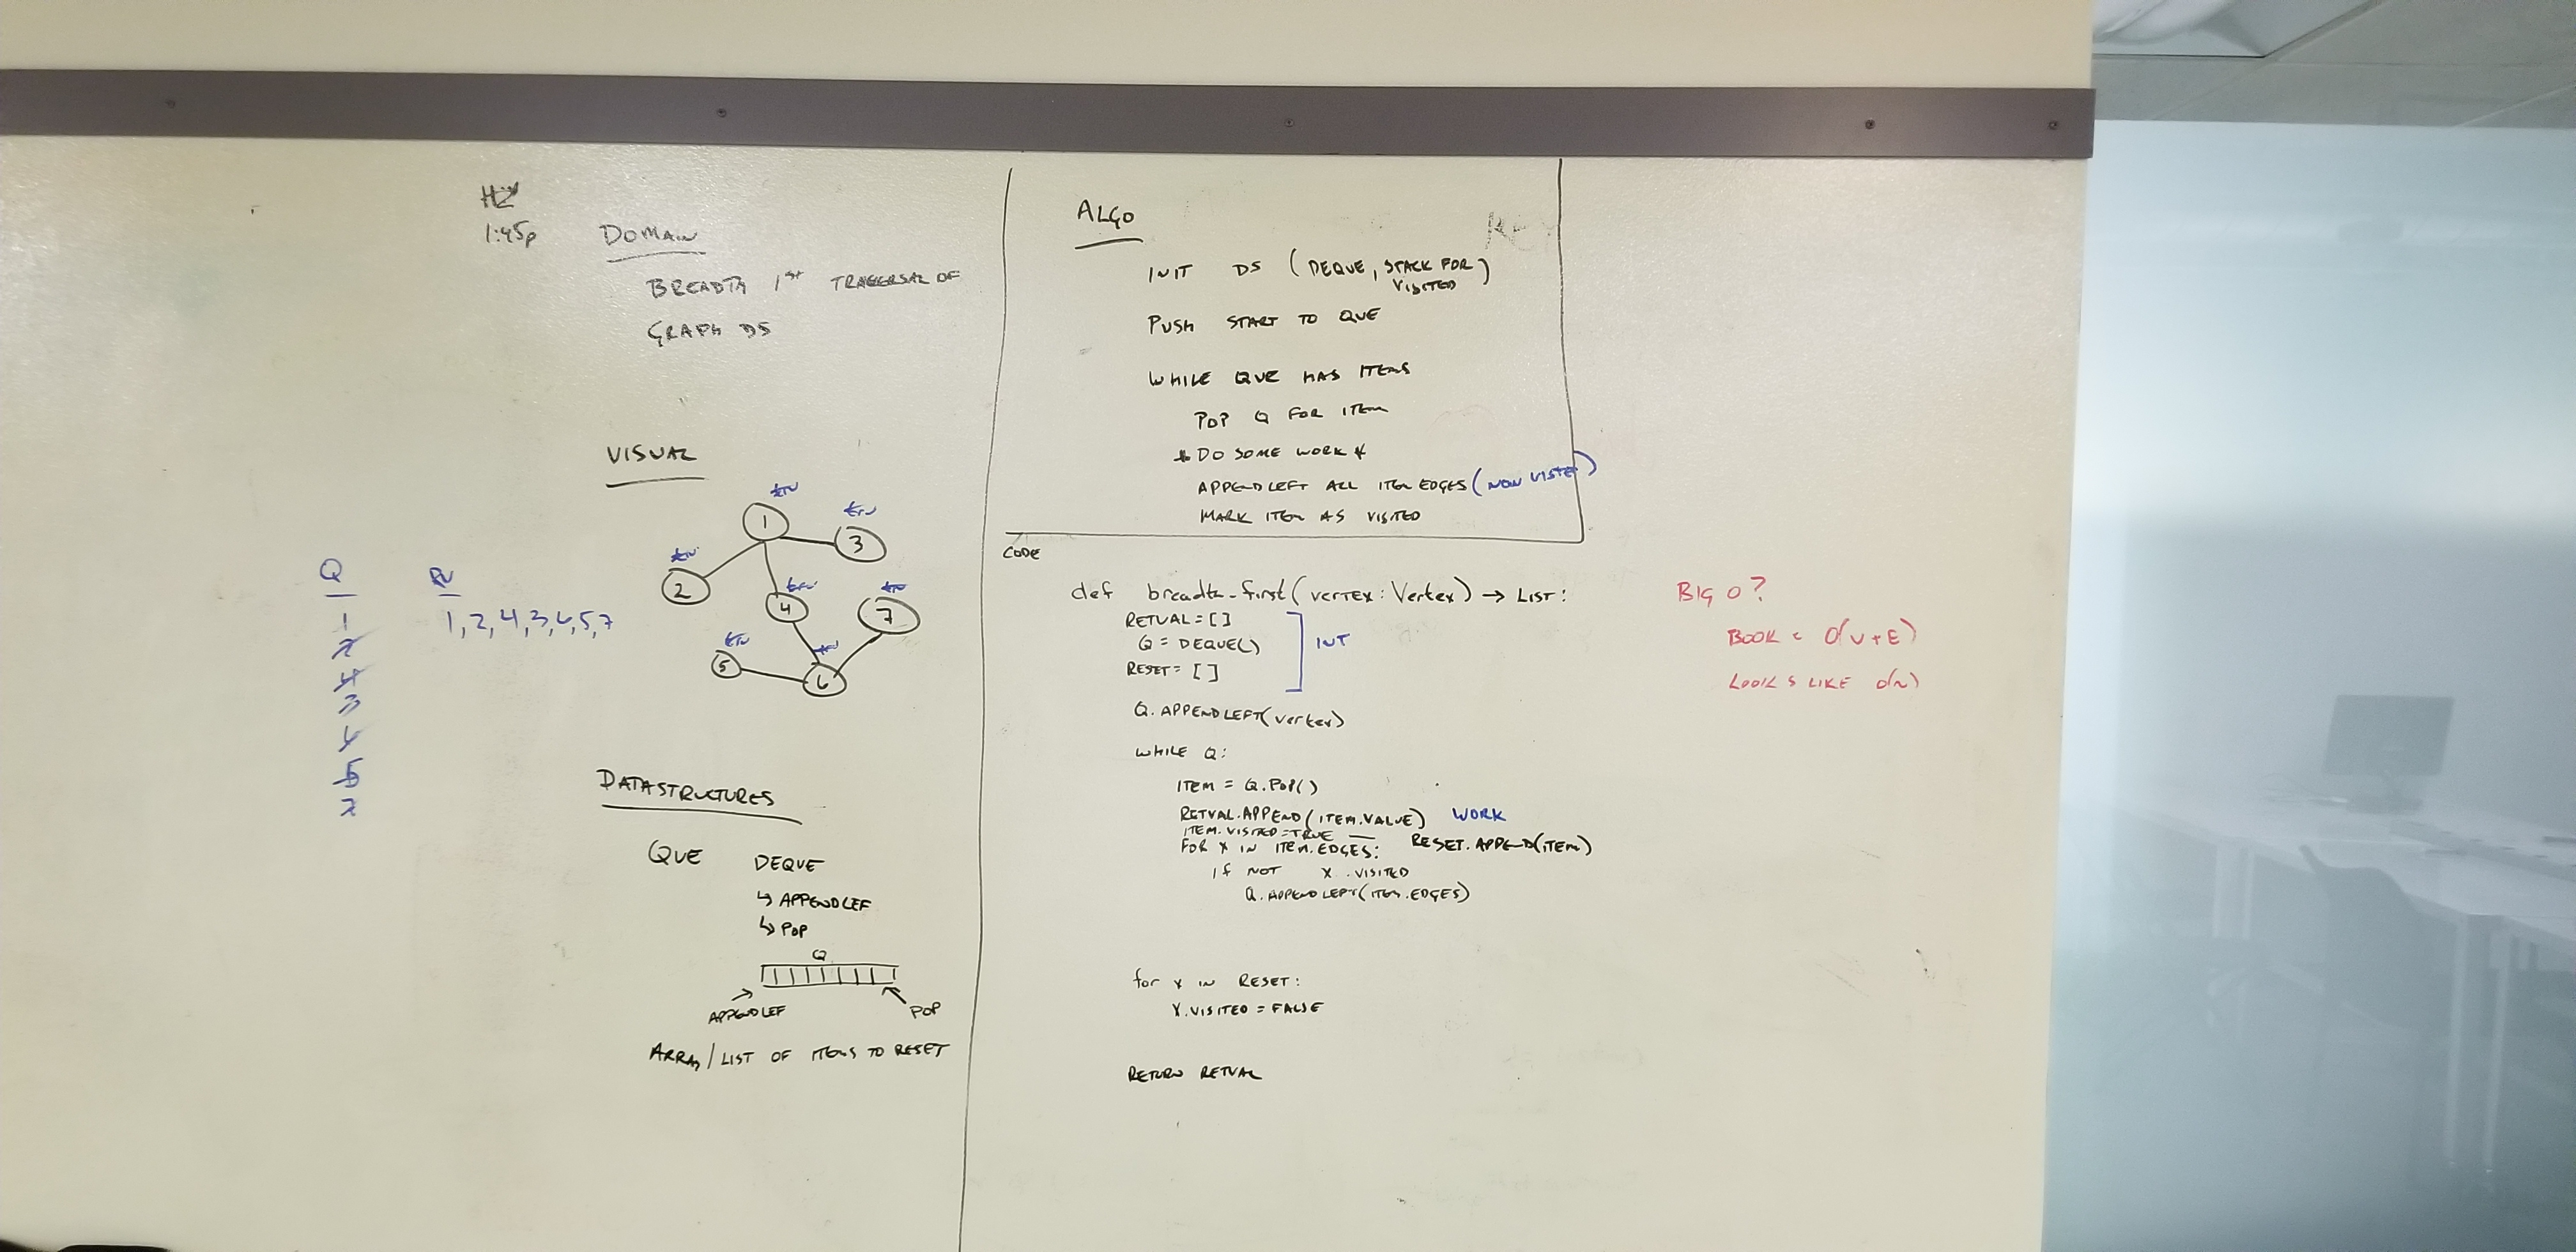 1:45p
DOMAIN
BREADTH 1ST TRAVERSAL OF
GRAPH DS
VISUAL
1
3
2
4
7
5
6
Q
RV
1
2
4
3
6
5
7
1,2,4,3,6,5,7
DATASTRUCTURES
QUE DEQUE
↳ APPENDLEF
↳ POP
Q
APPENDLEF
POP
ARRAY/LIST OF ITEMS TO RESET
ALGO
INIT DS (DEQUE, STACK FOR
VISITED)
PUSH START TO QUE
WHILE QUE HAS ITEMS
POP Q FOR ITEM
* DO SOME WORK *
APPENDLEFT ALL ITEM EDGES (NON VISTED)
MARK ITEM AS VISITED
CODE
def breadth_first(VERTEX: Vertex) → LIST:
RETVAL = []
Q = DEQUE()
RESET = []
INIT
Q.APPENDLEFT(Vertex)
WHILE Q:
ITEM = Q.POP()
RETVAL.APPEND(ITEM.VALUE) WORK
ITEM.VISITED = TRUE — RESET.APPEND(ITEM)
FOR X IN ITEM.EDGES:
if NOT X.VISITED
Q.APPENDLEFT(ITEM.EDGES)
for X IN RESET:
X.VISITED = FALSE
RETURN RETVAL
BIG O?
BOOK = O(V+E)
LOOKS LIKE O(N)